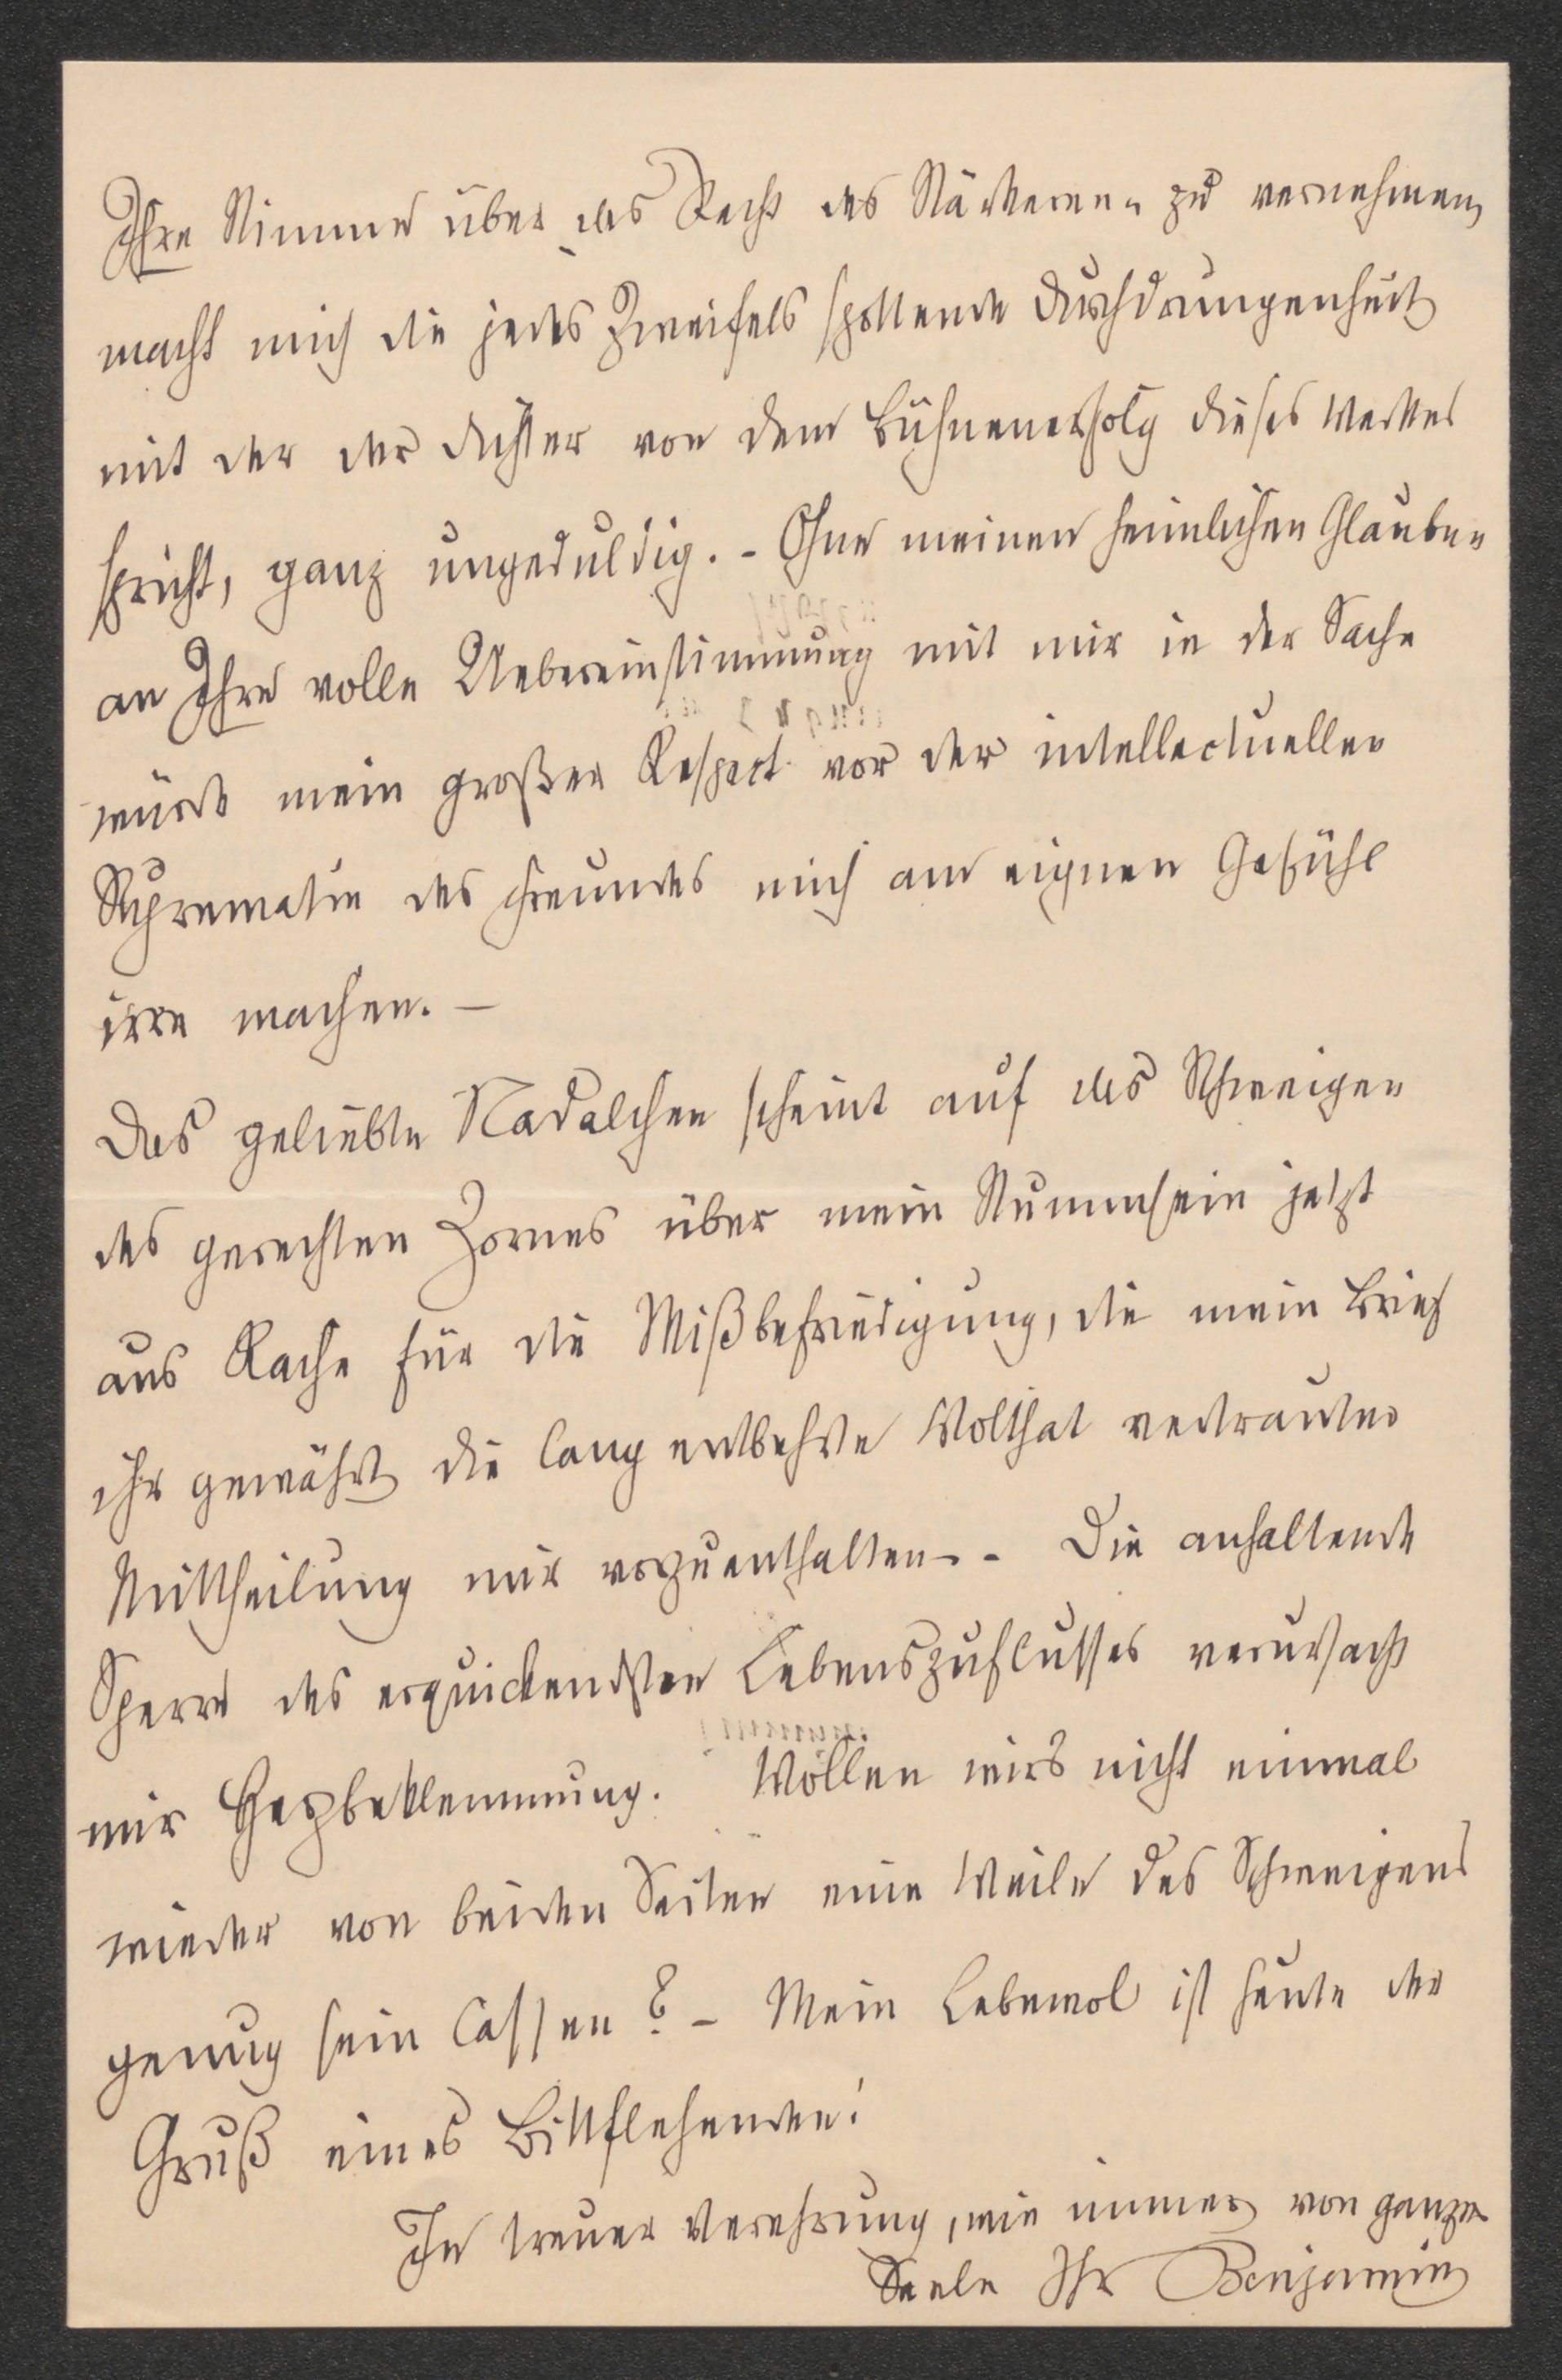 Ihre Stimme über das Recht des Stärkeren zu vernehmen,
macht mich die jedes Zweifels spottende Durchdrungenheit,
mit der der Dichter von dem Bühnenerfolg dieses Werkes
spricht, ganz ungeduldig. - Ohne meinen heimlichen Glauben
an Ihre volle Uebereinstimmung mit mir in der Sache
würde mein großer Respect vor der intellectuellen
Suprematie des Freundes mich am eignen Gefühl
irre machen. -
Das geliebte Nadalchen scheint auf das Schweigen
des gerechten Zornes über mein Stummsein jetzt
aus Rache für die Mißbefriedigung, die mein Brief
ihr gewährt, die lang entbehrte Wolthat vertrauter
Mittheilung mir vorzuenthalten. - Die anhaltende
Sperre des erquickendsten Lebenszuflusses verursacht
mir Herzbeklemmung. Wollen wirs nicht einmal
wieder von beiden Seiten eine Weile des Schweigens
genug sein lassen? - Mein Lebewol ist heute der
Gruß eines Bittflehenden!
In treuer Verehrung, wie immer, von ganzer
Seele Ihr Benjamin